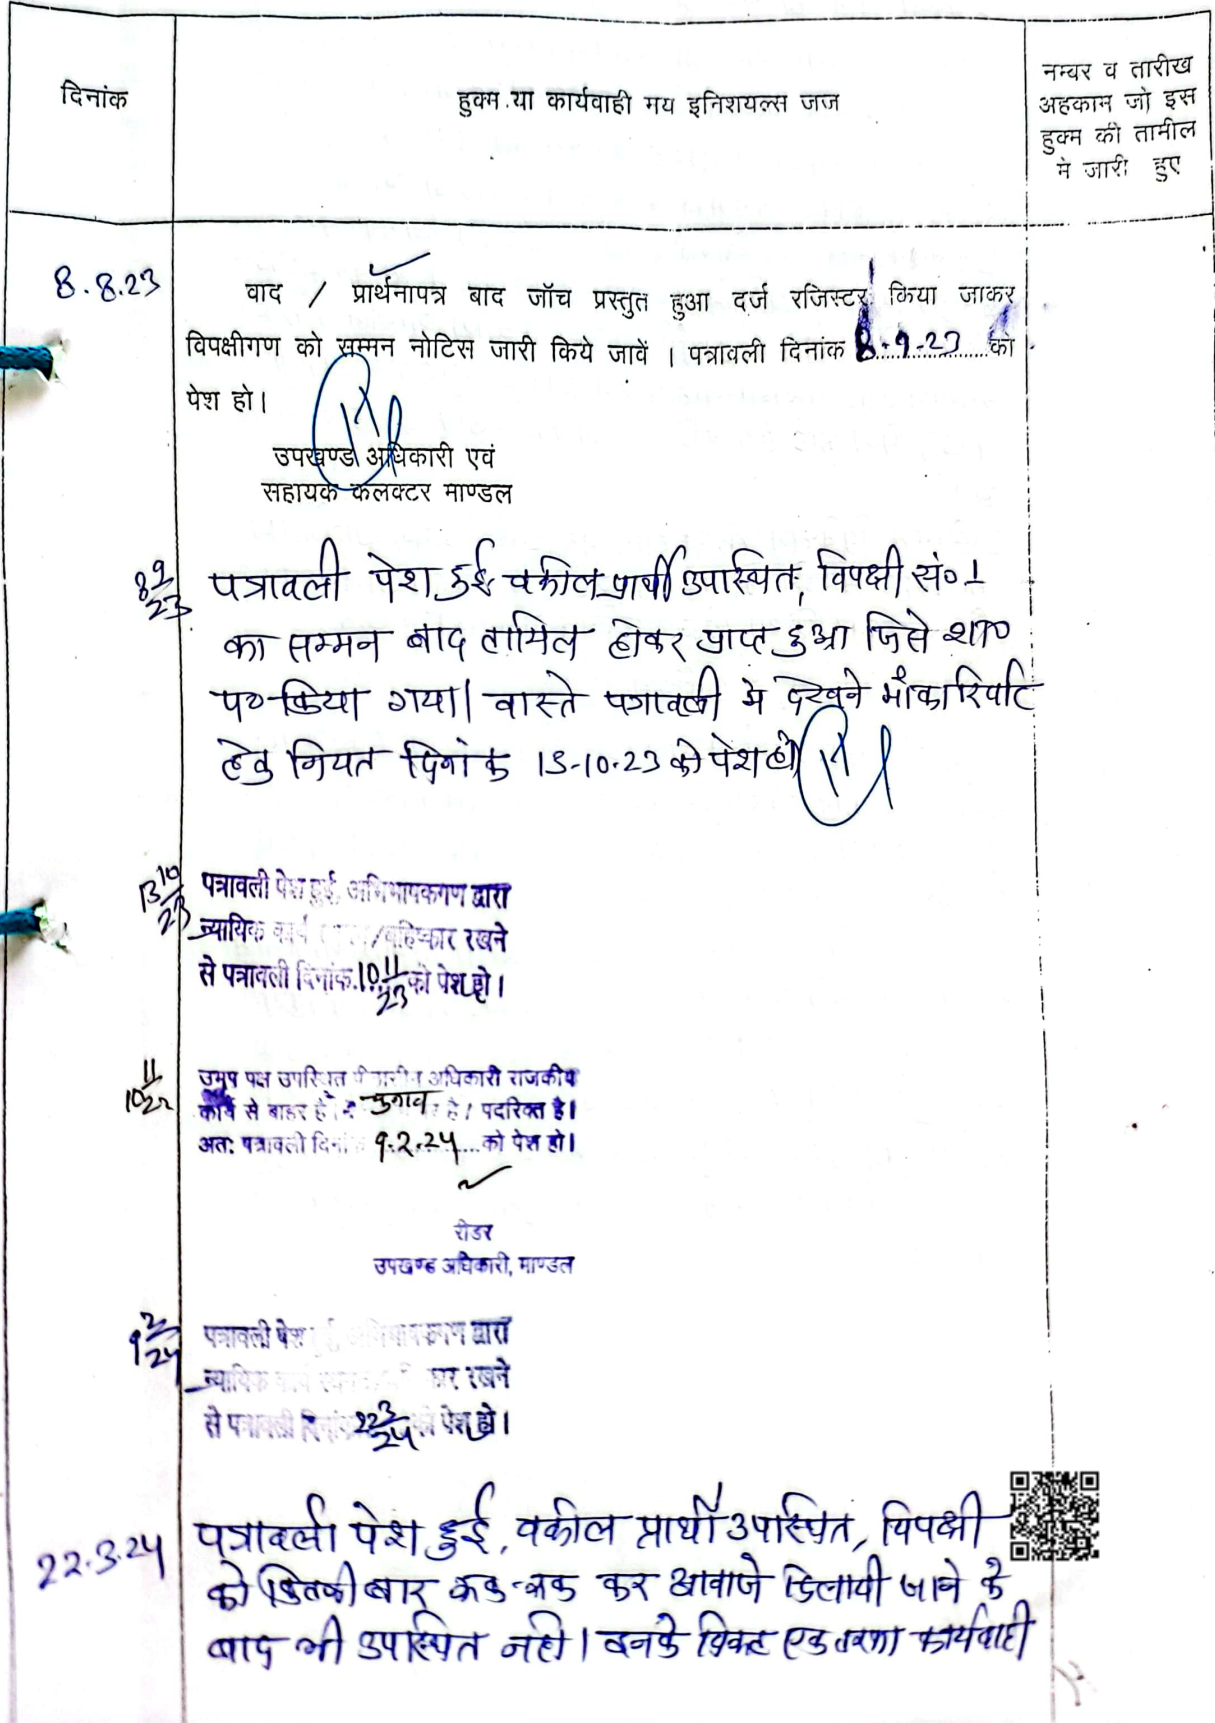 दिनांक
हुक्म या कार्यवाही मय इनिशयल्स जज
नम्बर व तारीख
अहकाम जो इस
हुक्म की तामील
मे जारी हुए
8.8.23
वाद / प्रार्थनापत्र बाद जॉच प्रस्तुत हुआ दर्ज रजिस्टर किया जाकर
विपक्षीगण को सम्मन नोटिस जारी किये जावें । पत्रावली दिनांक 8.9.23 को
पेश हो।
उपखण्ड अधिकारी एवं
सहायक कलक्टर माण्डल
8 9/23
पत्रावली पेश हुई, वकील प्रार्थी उपस्थित, विपक्षी सं० 1
का सम्मन बाद तामिल होकर प्राप्त हुआ जिसे शा०
प० किया गया। वास्ते पत्रावली मे देखने मौका रिपोर्ट
हेतु नियत दिनांक 13-10-23 को पेश हो
13 10/23
पत्रावली पेश हुई, अभिभाषकगण द्वारा
न्यायिक कार्य /बहिष्कार रखने
से पत्रावली दिनांक 10 11/23 को पेश हो।
10 11/23
उभय पक्ष उपस्थित पीठासीन अधिकारी राजकीय
कार्य से बाहर है चुनाव है। पदरिक्त है।
अतः पत्रावली दिनांक 9.2.24 को पेश हो।
रीडर
उपखण्ड अधिकारी, माण्डल
9 2/24
पत्रावली पेश हुई, अभिभाषकगण द्वारा
न्यायिक कार्य रखने
से पत्रावली दिनांक 22 3/24 को पेश हो।
22.3.24
पत्रावली पेश हुई, वकील प्रार्थी उपस्थित, विपक्षी
को कितनी बार कर आवाजे दिलायी जाने के
बाद भी उपस्थित नही। इनके विरूद्ध एक तरफा कार्यवाही